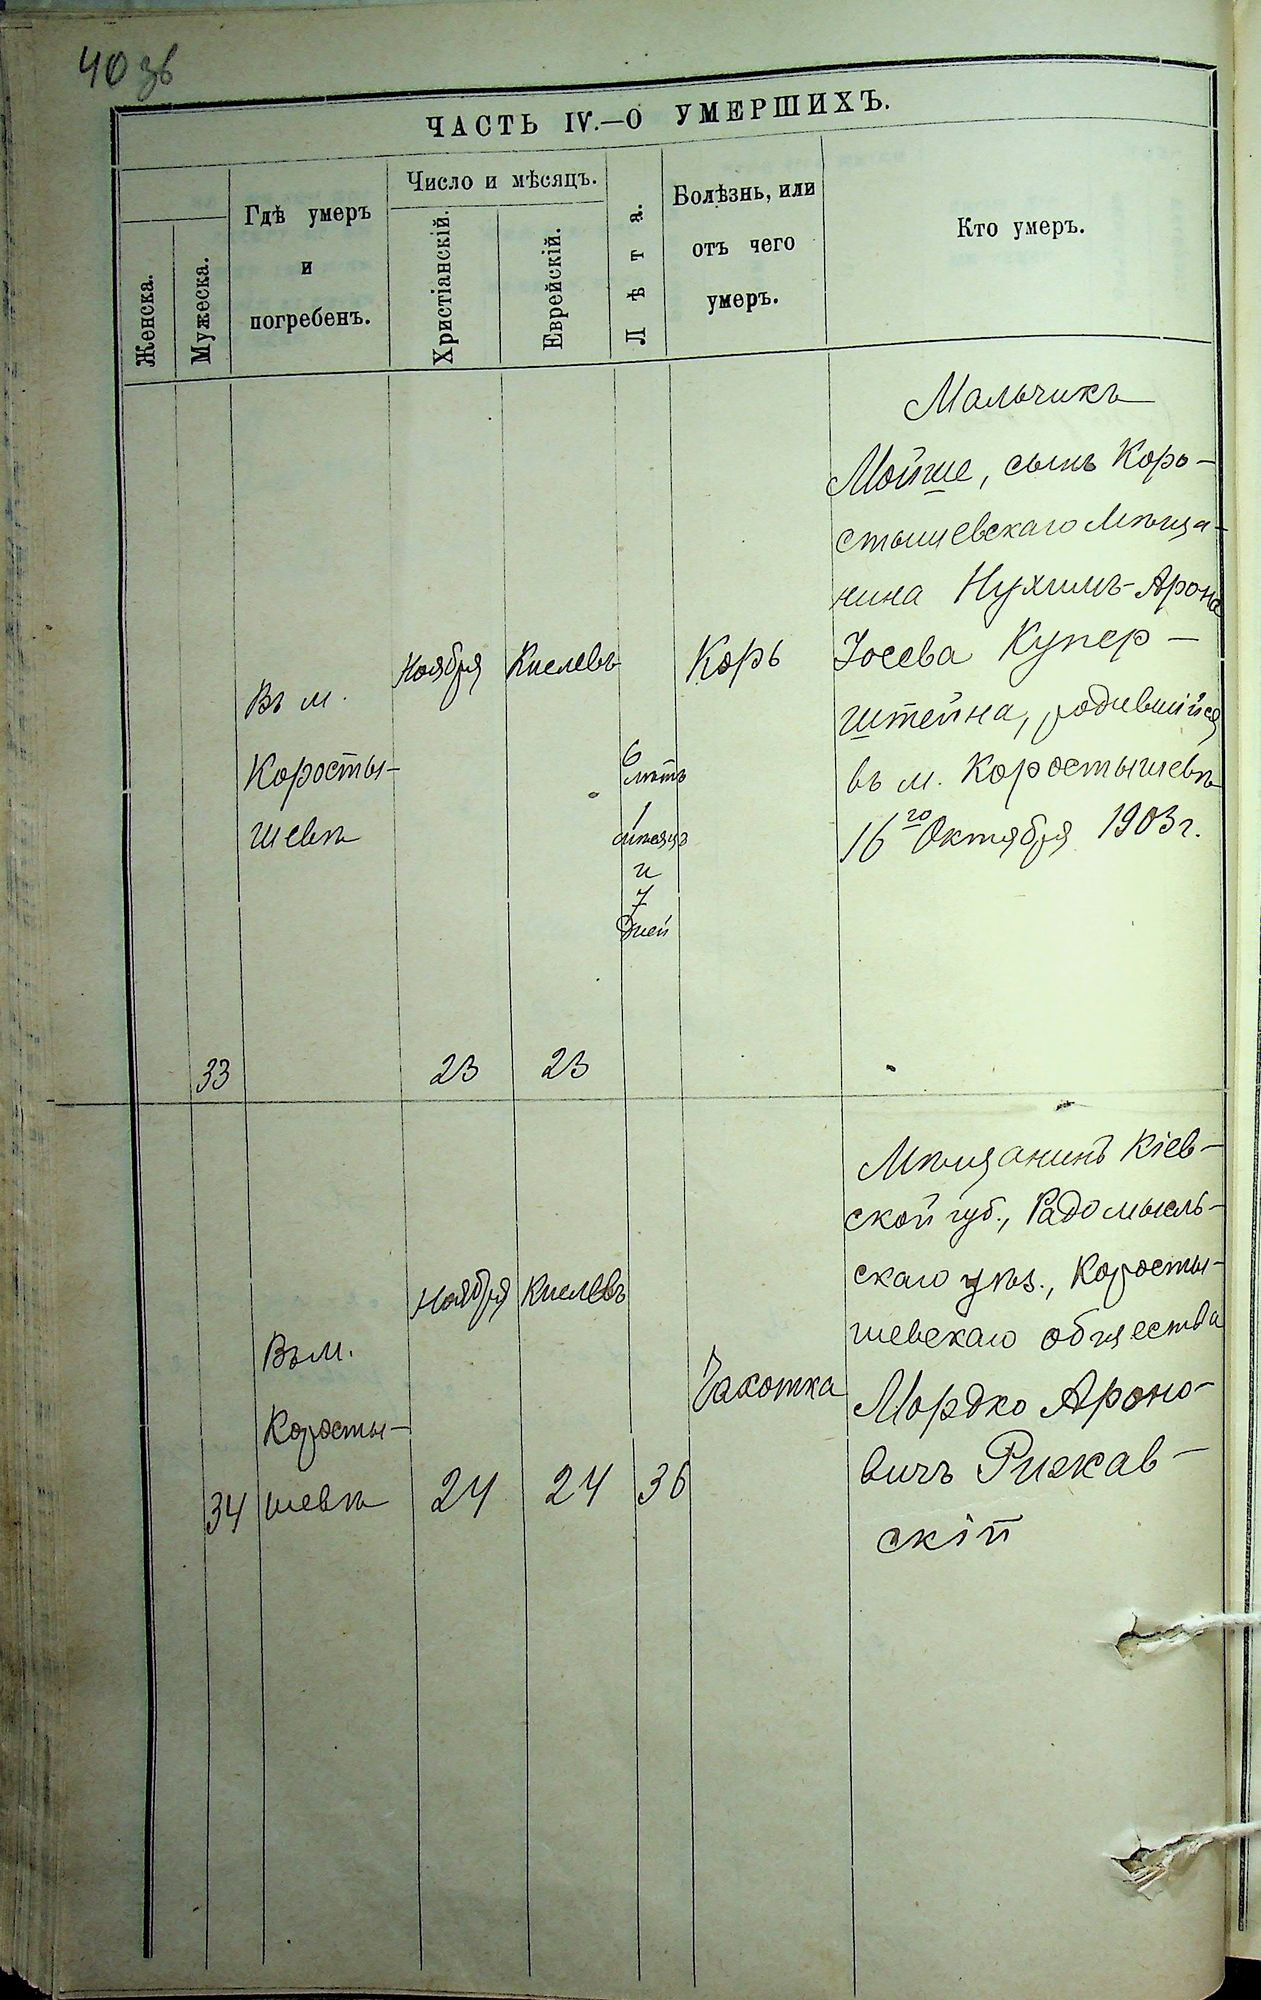 40 зв
ЧАСТЬ IV.—О УМЕРШИХЪ.
Женска.
Мужеска.
Гдѣ умеръ
и
погребенъ.
Число и мѣсяцъ.
Христіанскій.
Еврейскій.
Лѣта.
Болѣзнь, или
отъ чего
умеръ.
Кто умеръ.
33
Въ м.
Коросты-
шевѣ
Ноября
23
Кислевъ
23
6
лѣтъ
1
мѣсяцъ
и
7
дней
Корь
Мальчикъ
Мойше, сынъ Коро-
стышевскаго мѣща-
нина Нухимъ-Арона
Іосева Купер-
штейна, родившійся
въ м. Коростышевѣ
16го Октября 1903 г.
34
Въ м.
Коросты-
шевѣ
Ноября
24
Кислевъ
24
36
Чахотка
Мѣщанинъ Кіев-
ской губ., Радомысль-
скаго уѣз., Коросты-
шевскаго общества
Мордко Ароно-
вичъ Рижав-
скій